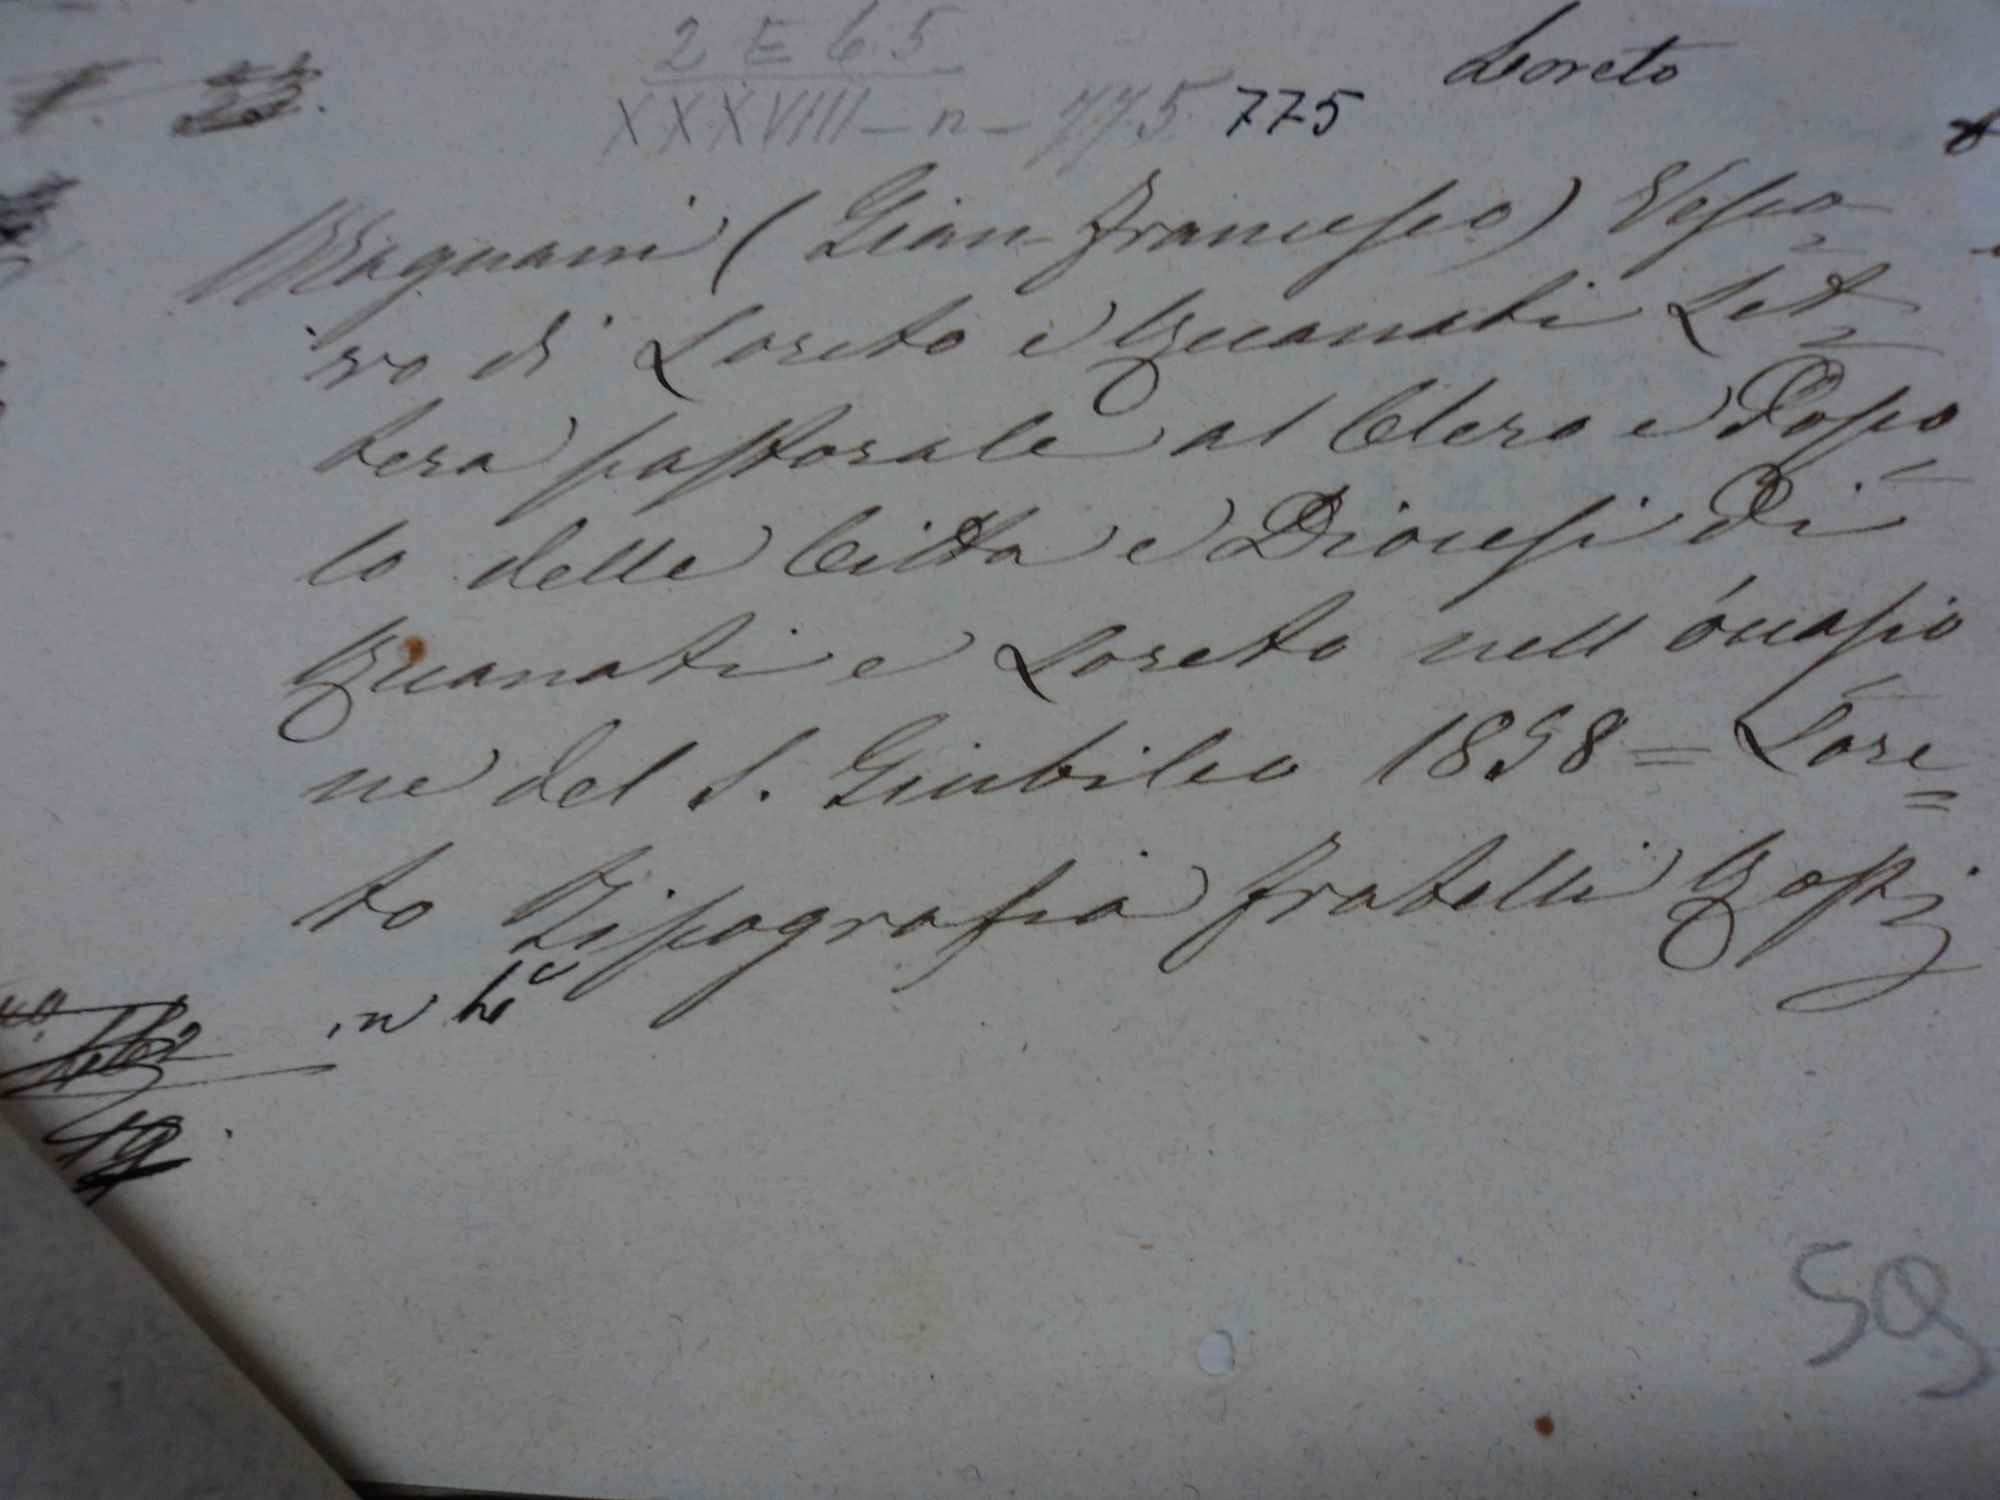 2 E 65
XXXVIII - n - 775 775
Loreto
Magnani (Gian-Francesco) Vesco=
vo di Loreto e Recanati Let=
tera pastorale al Clero e Popo=
lo delle Città e Diocesi di
Recanati e Loreto nell'occasio=
ne del S. Giubileo 1858 = Lore=
to Tipografia fratelli Rossi
in 4°